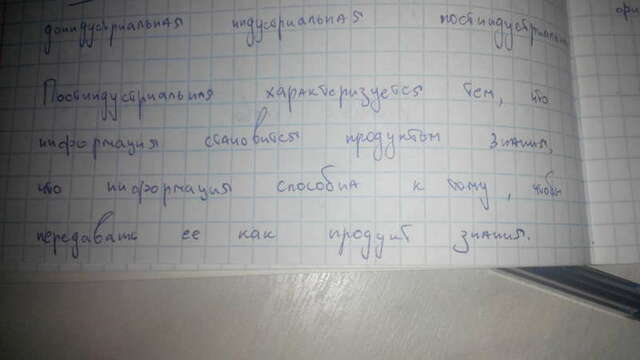 доиндустриальная индустриальная постиндустриальн
Постиндустриальная характеризуется тем, что
информация становится продуктом знания,
что информация способна к тому, чтобы
передавать ее как продукт знания.